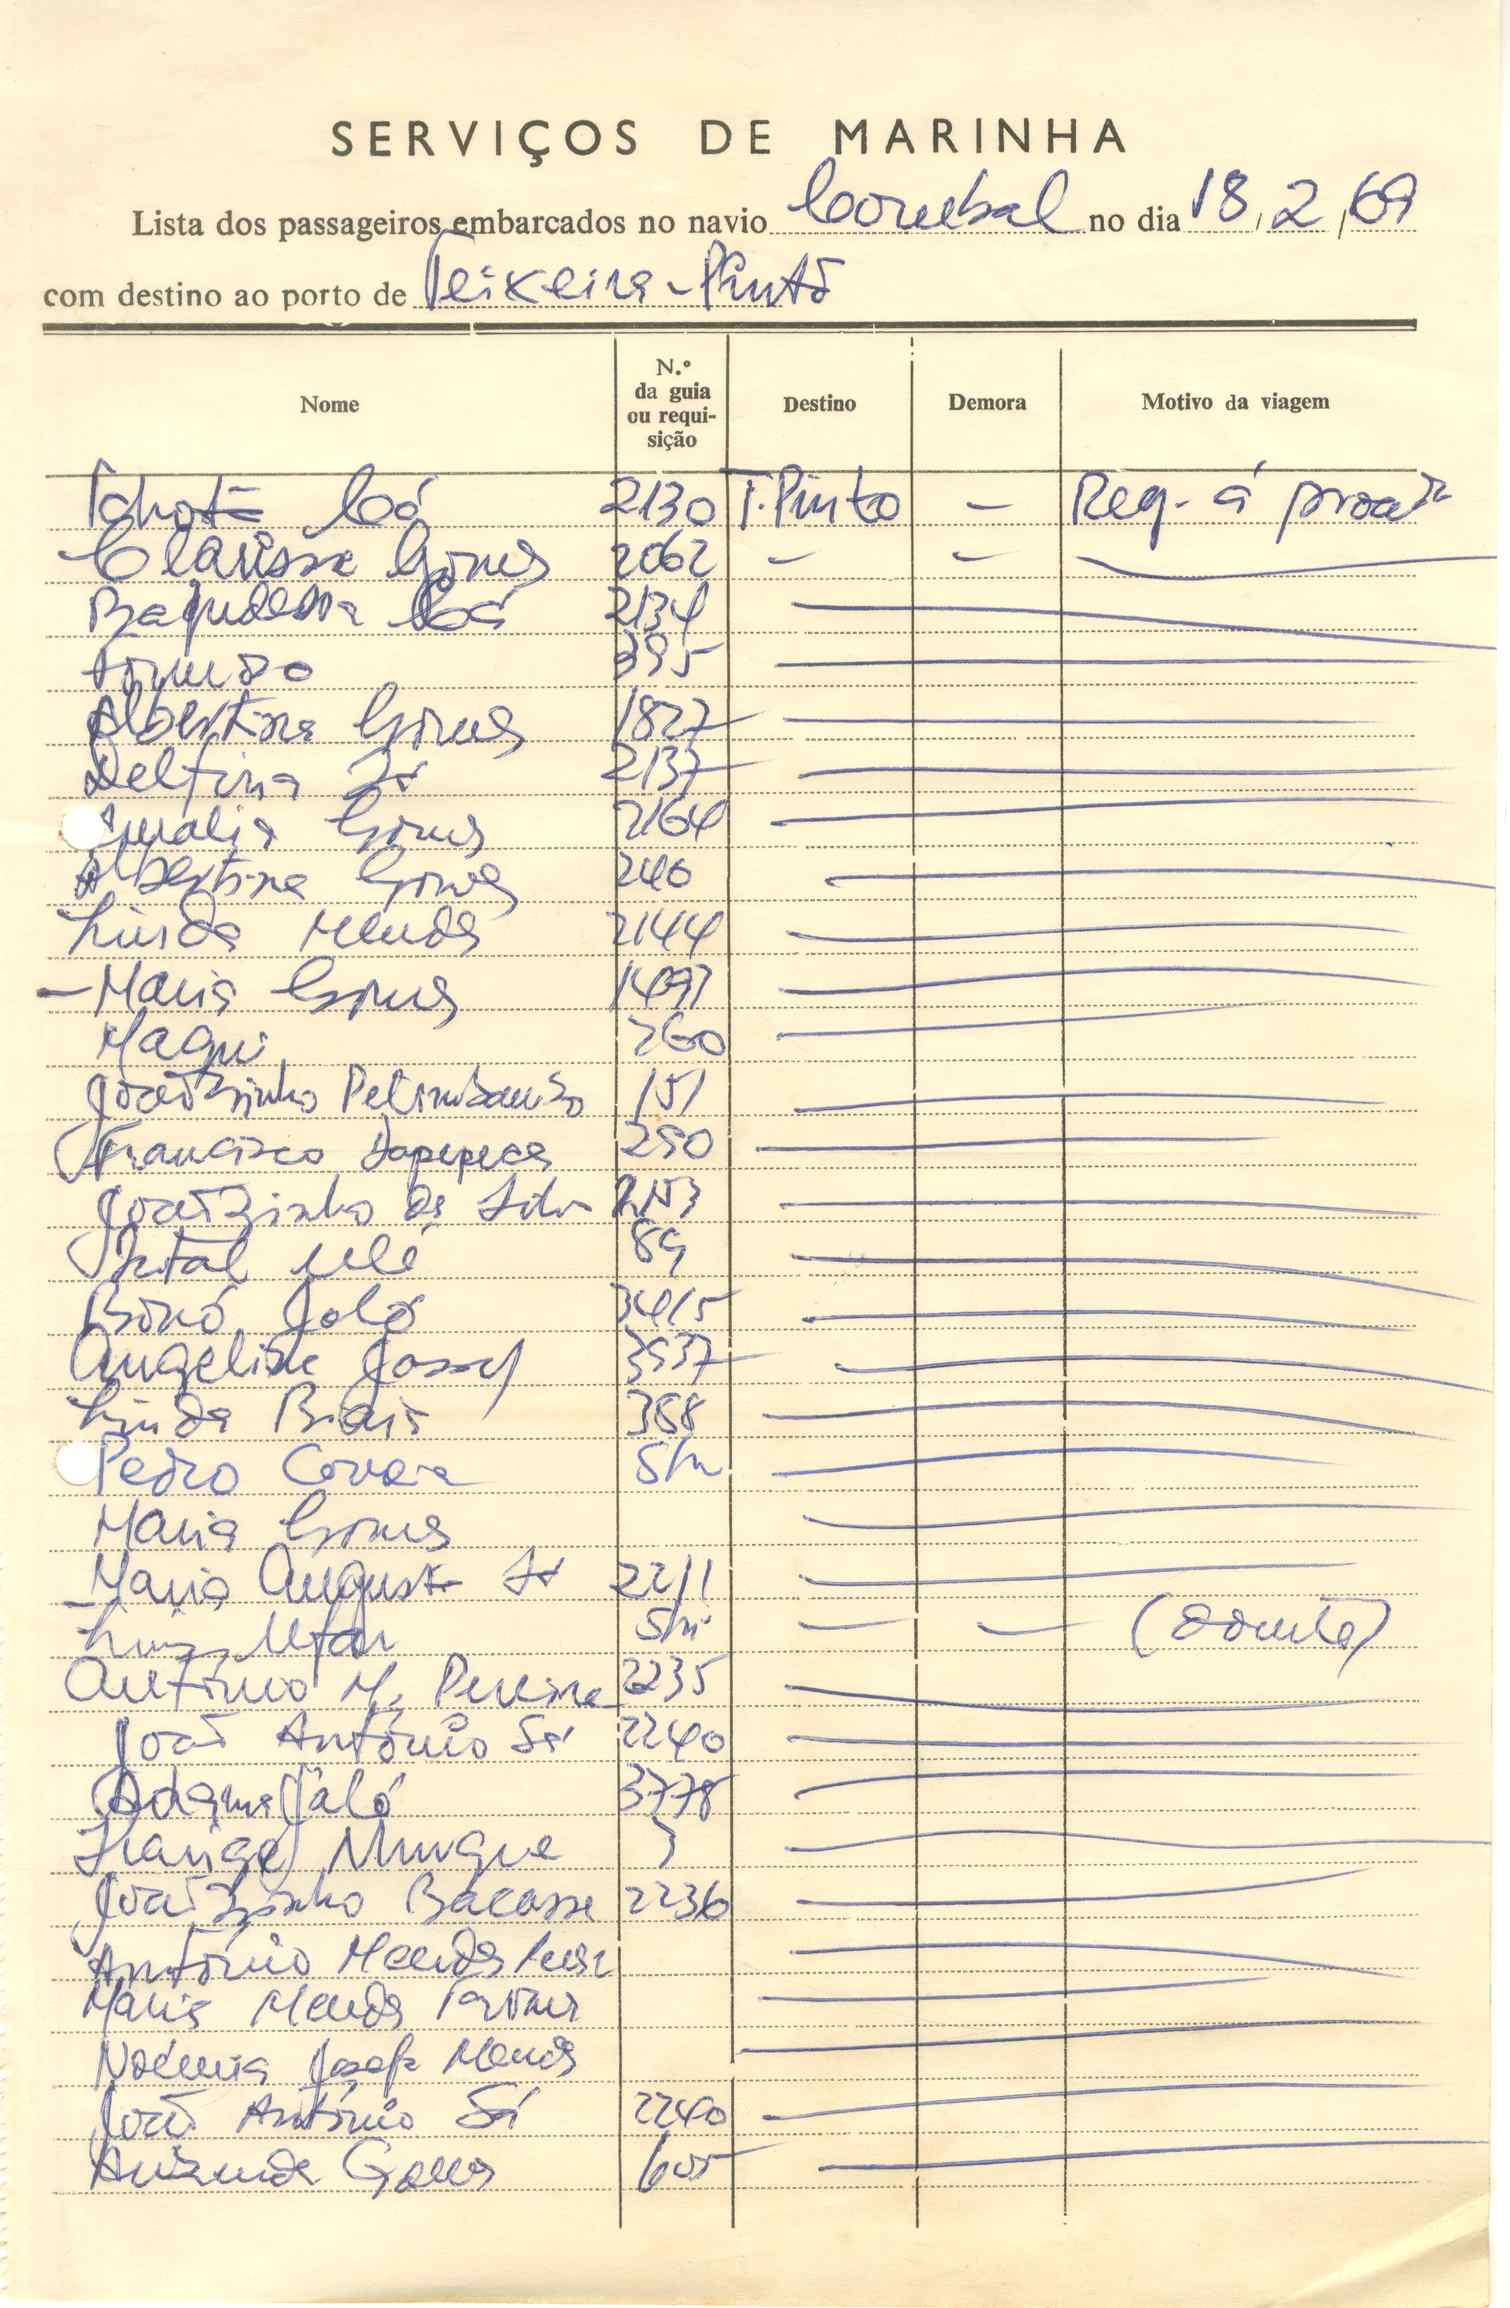 SERVIÇOS DE MARINHA
Lista dos passageiros embarcados no navio Corubal no dia 18/2/69
com destino ao porto de Teixeira-Pinto
Nome N.º da guia ou requisição Destino Demora Motivo da viagem
Có 2130 T. Pinto — Reg. á proa
Clarisse Gomes 2062 — —
Cá 2134
395
Albertina Gomes 1827
Delfina Sá 2137
Gomes 2164
Albertina Gomes 240
Linda Mendes 2144
— Maria Gomes 1497
Maqui 260
Joãozinho 151
Francisco 250
Joãozinho da Silva 2153
89
Jaló 3415
Angelina 3537
Linda Biais 388
Pedro Correia S/n
Maria Gomes
— Maria Augusta Sá 2211
S/n — — (doente)
António M. Pereira 2235
João António Sá 2240
Adama Jaló 3778
3
Joãozinho Bacasse 2236
António Mendes
Maria Mendes
Noémia Josefa Mendes
João António Sá 2240
Gomes 605